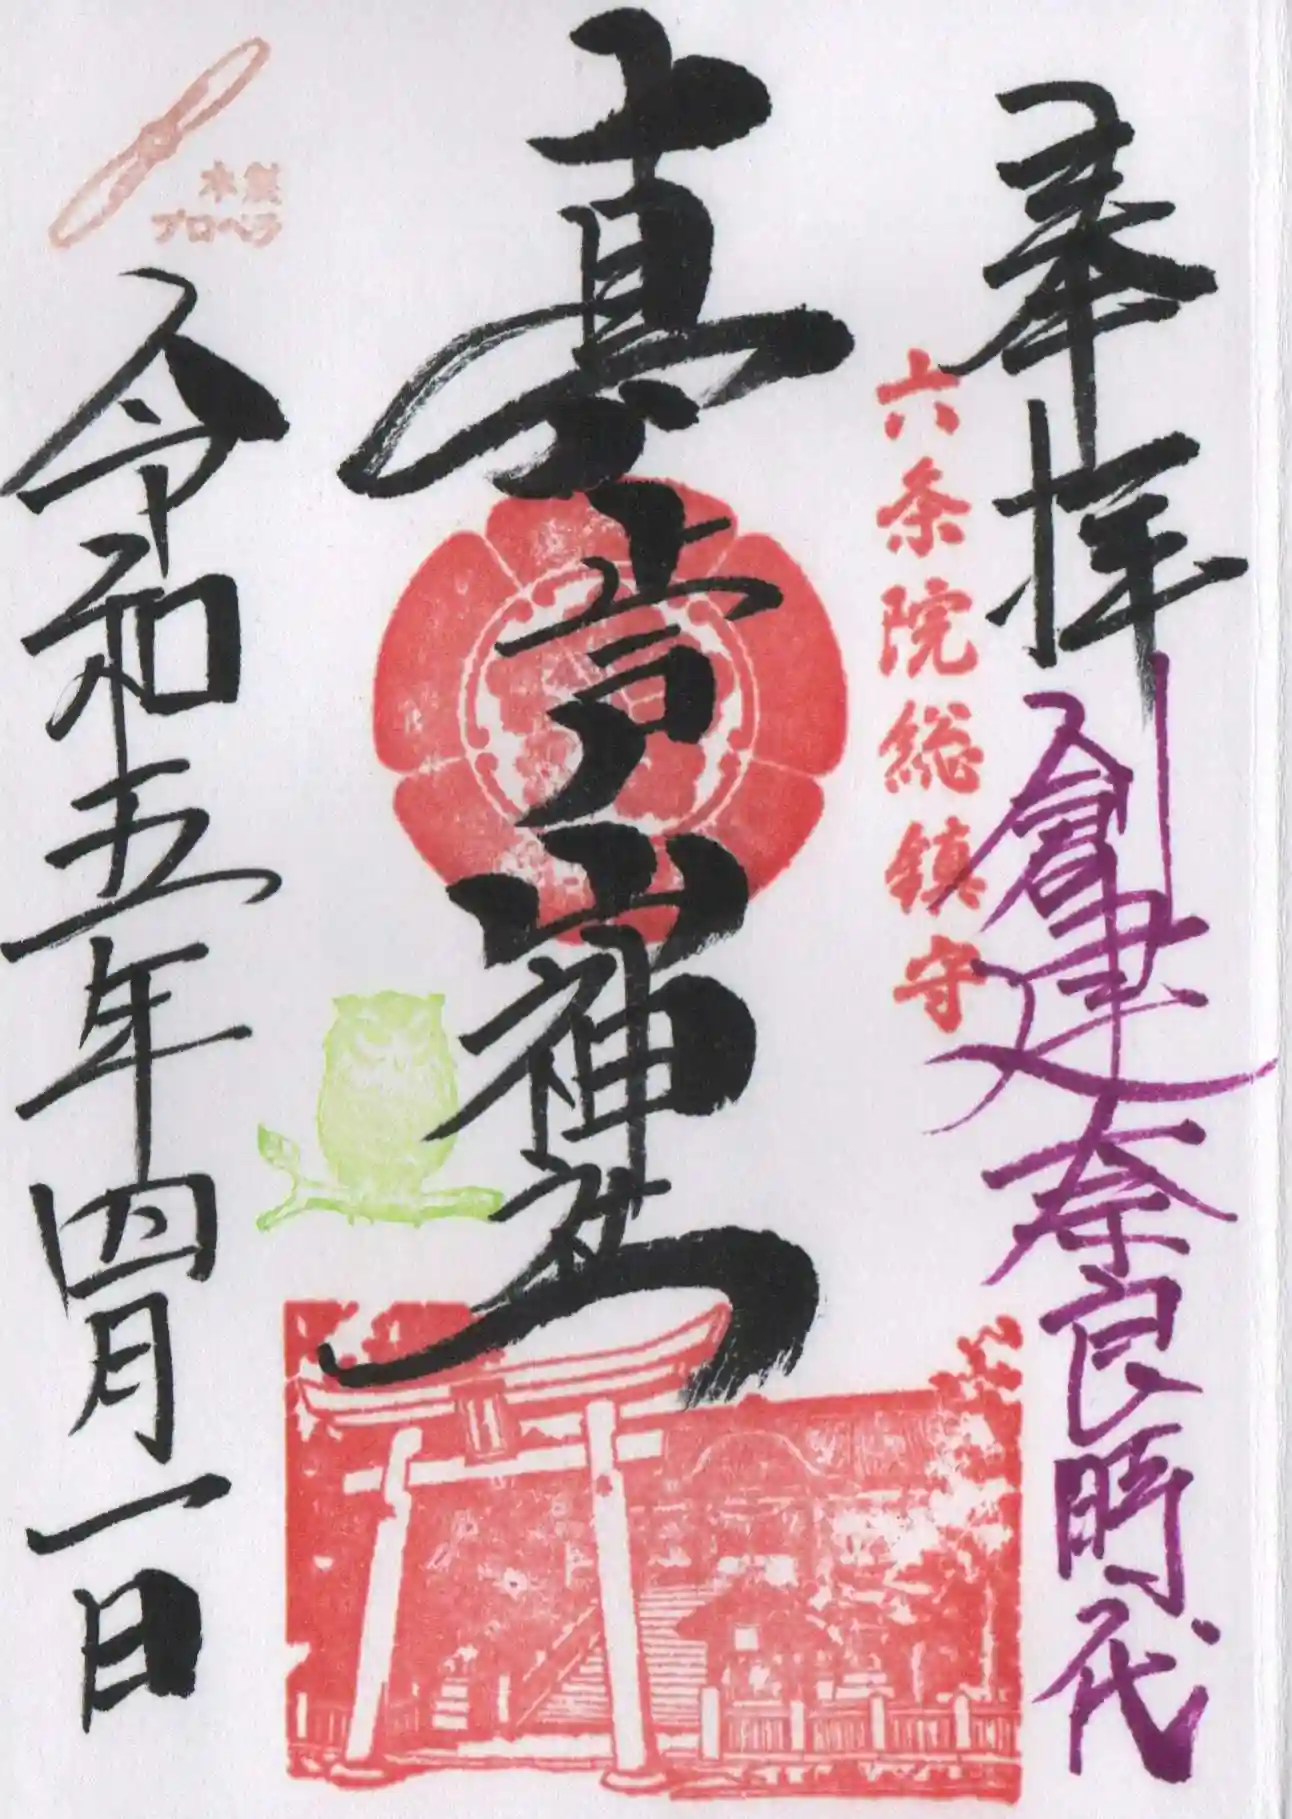 奉拝
創建奈良時代
六条院総鎮守
真止戸山神社
木製
プロペラ
令和五年四月一日